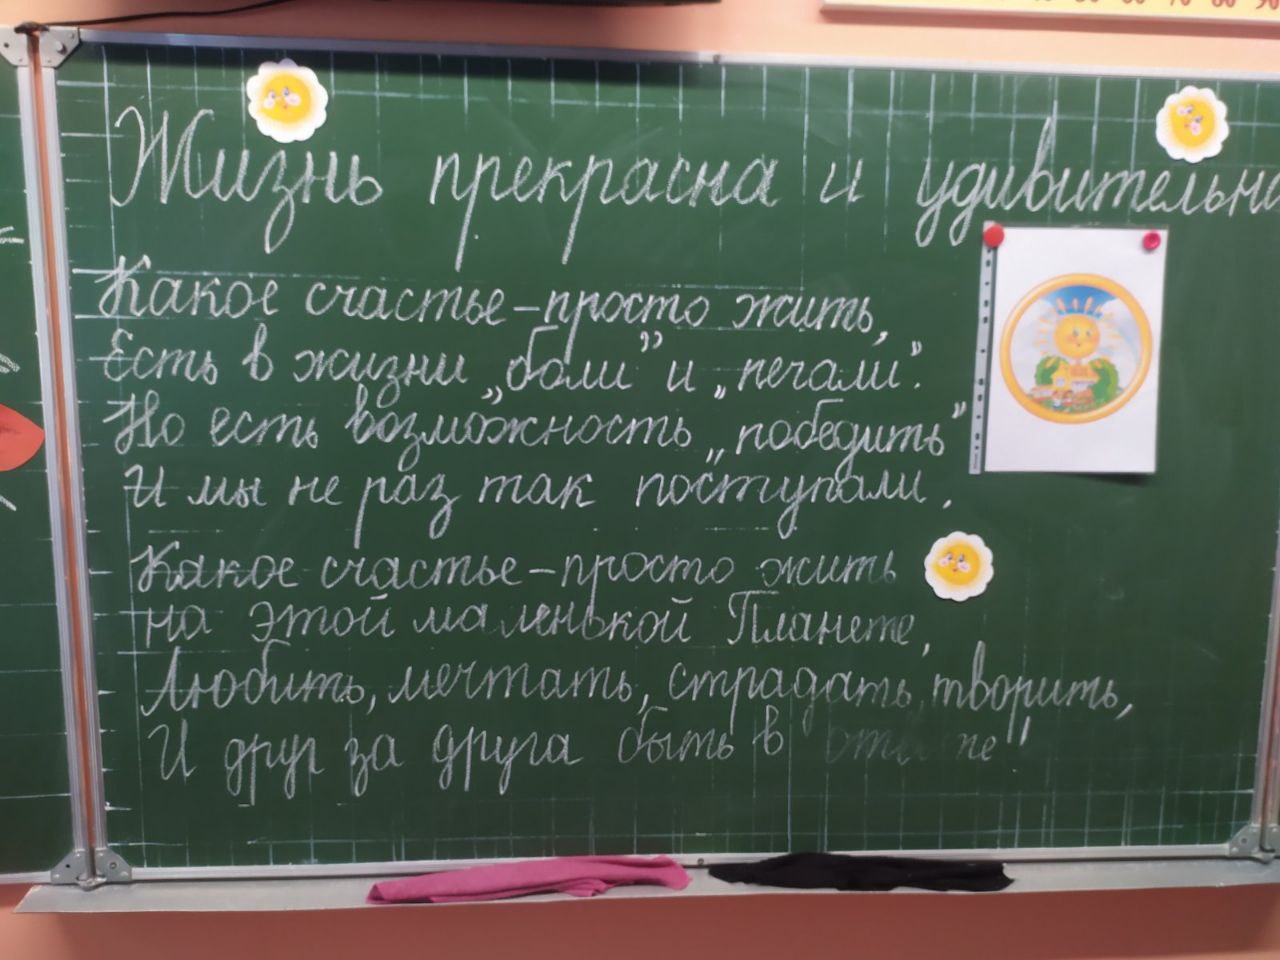 Жизнь прекрасна и удивительна
Какое счастье – просто жить,
Есть в жизни „боли” и „печали”.
Но есть возможность „победить”
И мы не раз так поступали.
Какое счастье – просто жить
на этой маленькой Планете,
Любить, мечтать, страдать, творить,
И друг за друга быть в